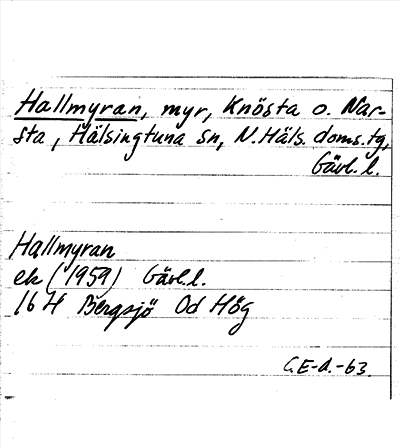 Hallmyran, myr, Knösta o. Nar-
sta, Hälsingtuna sn, N. Häls. doms.tg,
Gävl. l.
Hallmyran
ek (1959) Gävl.l.
16 H Bergsjö Od Hög
C.E-d.-63.